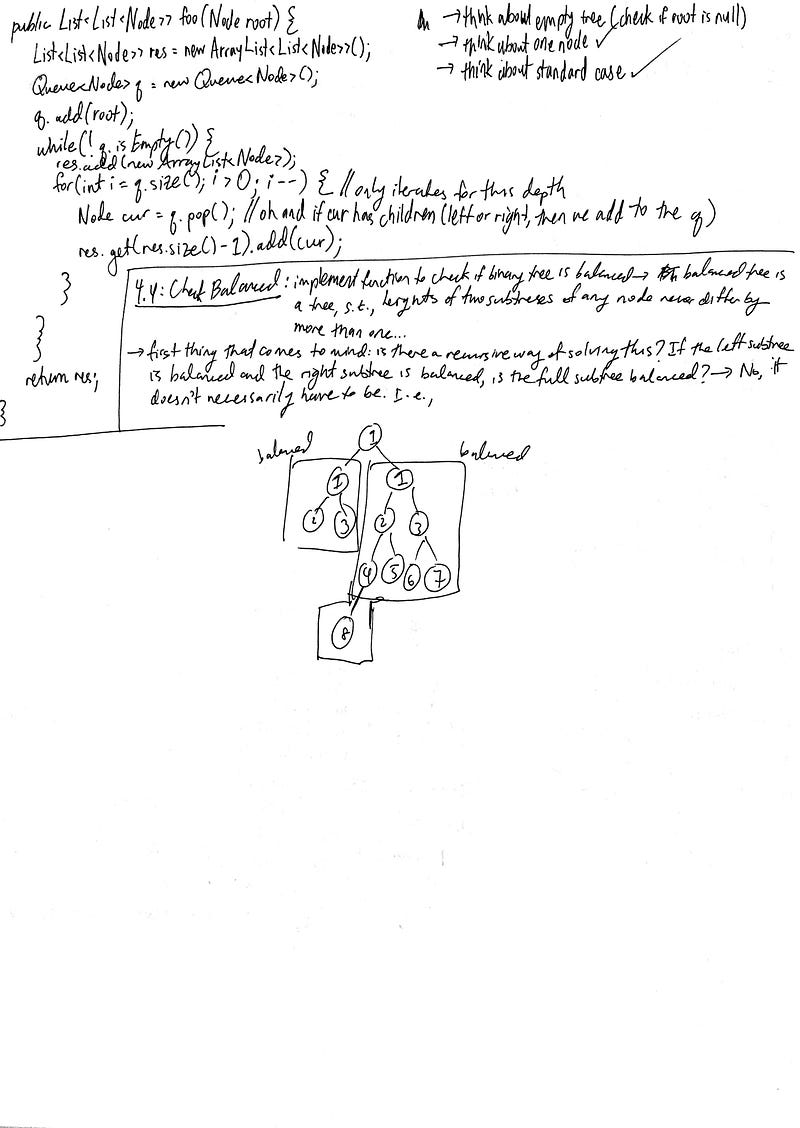 public List<List<Node>> foo(Node root) {
List<List<Node>> res = new ArrayList<List<Node>>();
Queue<Node> q = new Queue<Node>();
q.add(root);
while(!q.isEmpty()) {
res.add(new ArrayList<Node>);
for(int i = q.size(); i > 0; i--) { //only iterates for this depth
Node cur = q.pop(); //oh and if cur has children (left or right, then we add to the q)
res.get(res.size()-1).add(cur);
}
}
return res;
}
→ think about empty tree (check if root is null)
→ think about one node ✓
→ think about standard case ✓
4.4: Check Balanced: implement function to check if binary tree is balanced → balanced tree is
a tree, s.t., heights of two subtrees of any node never differ by
more than one...
→ first thing that comes to mind: is there a recursive way of solving this? If the left subtree
is balanced and the right subtree is balanced, is the full subtree balanced? → No, it
doesn't necessarily have to be. I.e.,
balanced
balanced
1
1 1
2 3 2 3
4 5 6 7
8